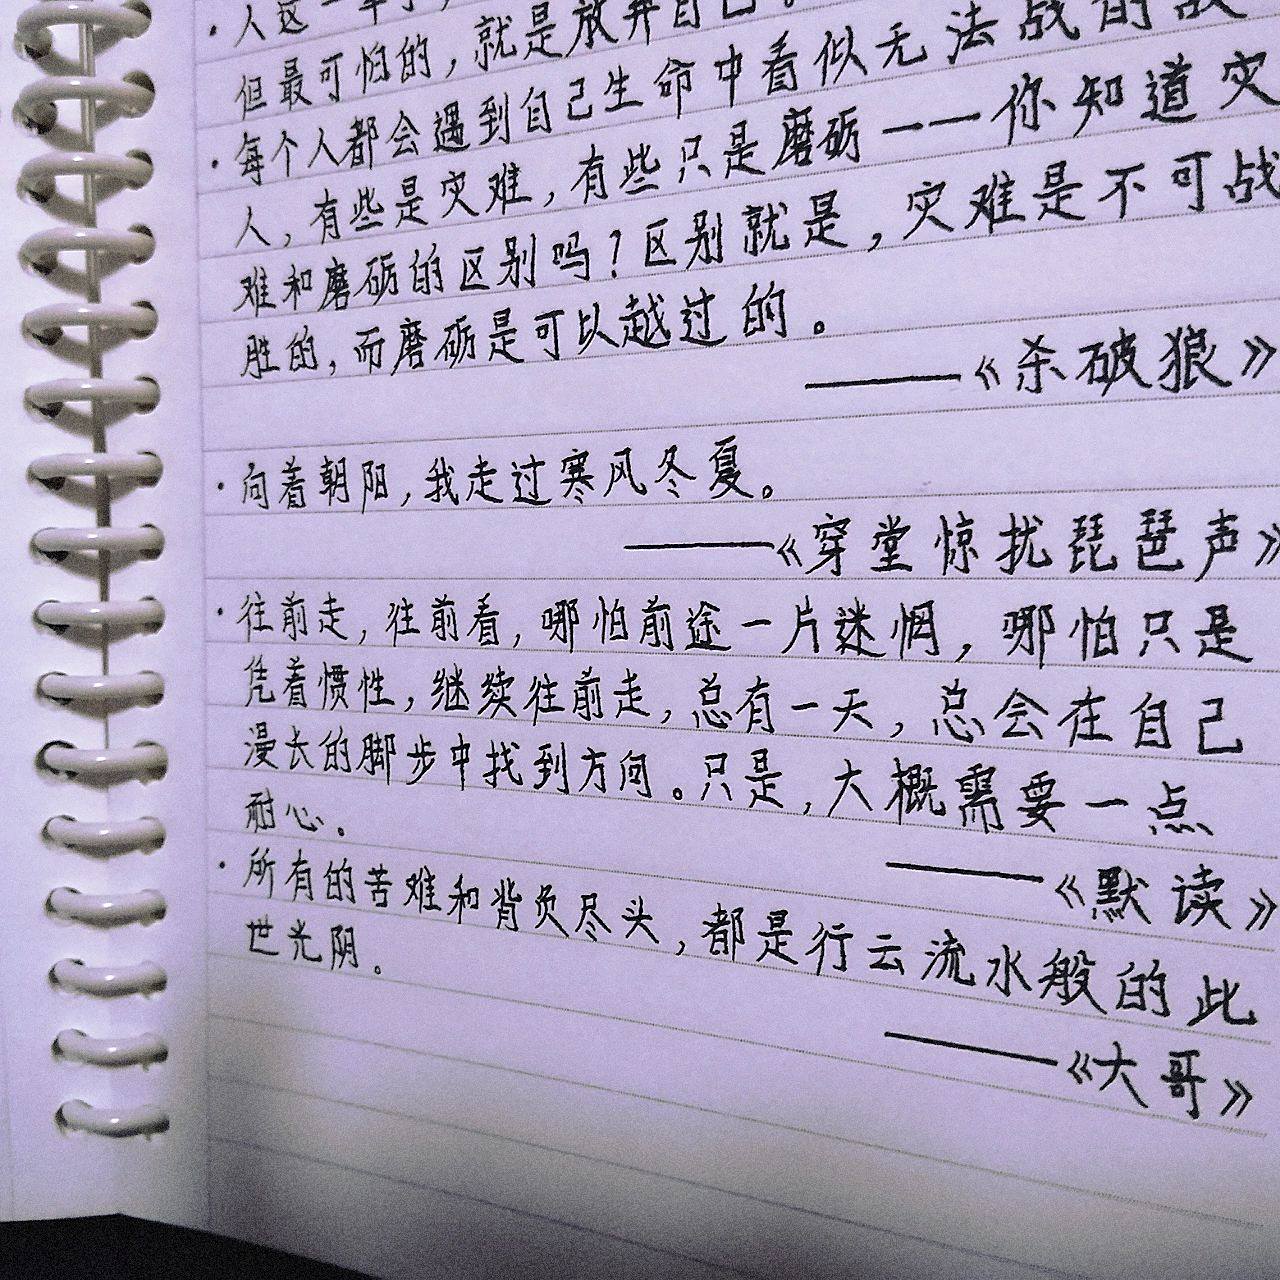 ·人这一辈子，
但最可怕的，就是放弃自己。
·每个人都会遇到自己生命中看似无法战的敌
人，有些是灾难，有些只是磨砺——你知道灾
难和磨砺的区别吗？区别就是，灾难是不可战
胜的，而磨砺是可以越过的。
——《杀破狼》
·向着朝阳，我走过寒风冬夏。
——《穿堂惊扰琵琶声》
·往前走，往前看，哪怕前途一片迷惘，哪怕只是
凭着惯性，继续往前走，总有一天，总会在自己
漫长的脚步中找到方向。只是，大概需要一点
耐心。
——《默读》
·所有的苦难和背负尽头，都是行云流水般的此
世光阴。
——《大哥》